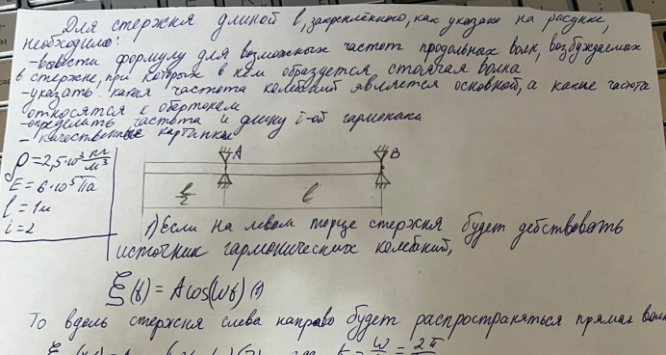 Для стержня длиной l, закреплённого, как указано на рисунке,
необходимо:
- вывести формулу для возможных частот продольных волн, возбуждаемых
в стержне, при которых в нём образуется стоячая волна
- указать какая частота колебаний является основной, а какие частоты
относятся к обертонам
- определить частоту и длину i-ой гармоники
- качественные картинки
ρ = 2,5·10³ кг/м³
E = 6·10⁵ Па
l = 1м
i = 2
A
B
l/2
l
1) Если на левом торце стержня будет действовать
источник гармонических колебаний,
ξ(t) = A cos(ωt) (1)
То вдоль стержня слева направо будет распространяться прямая